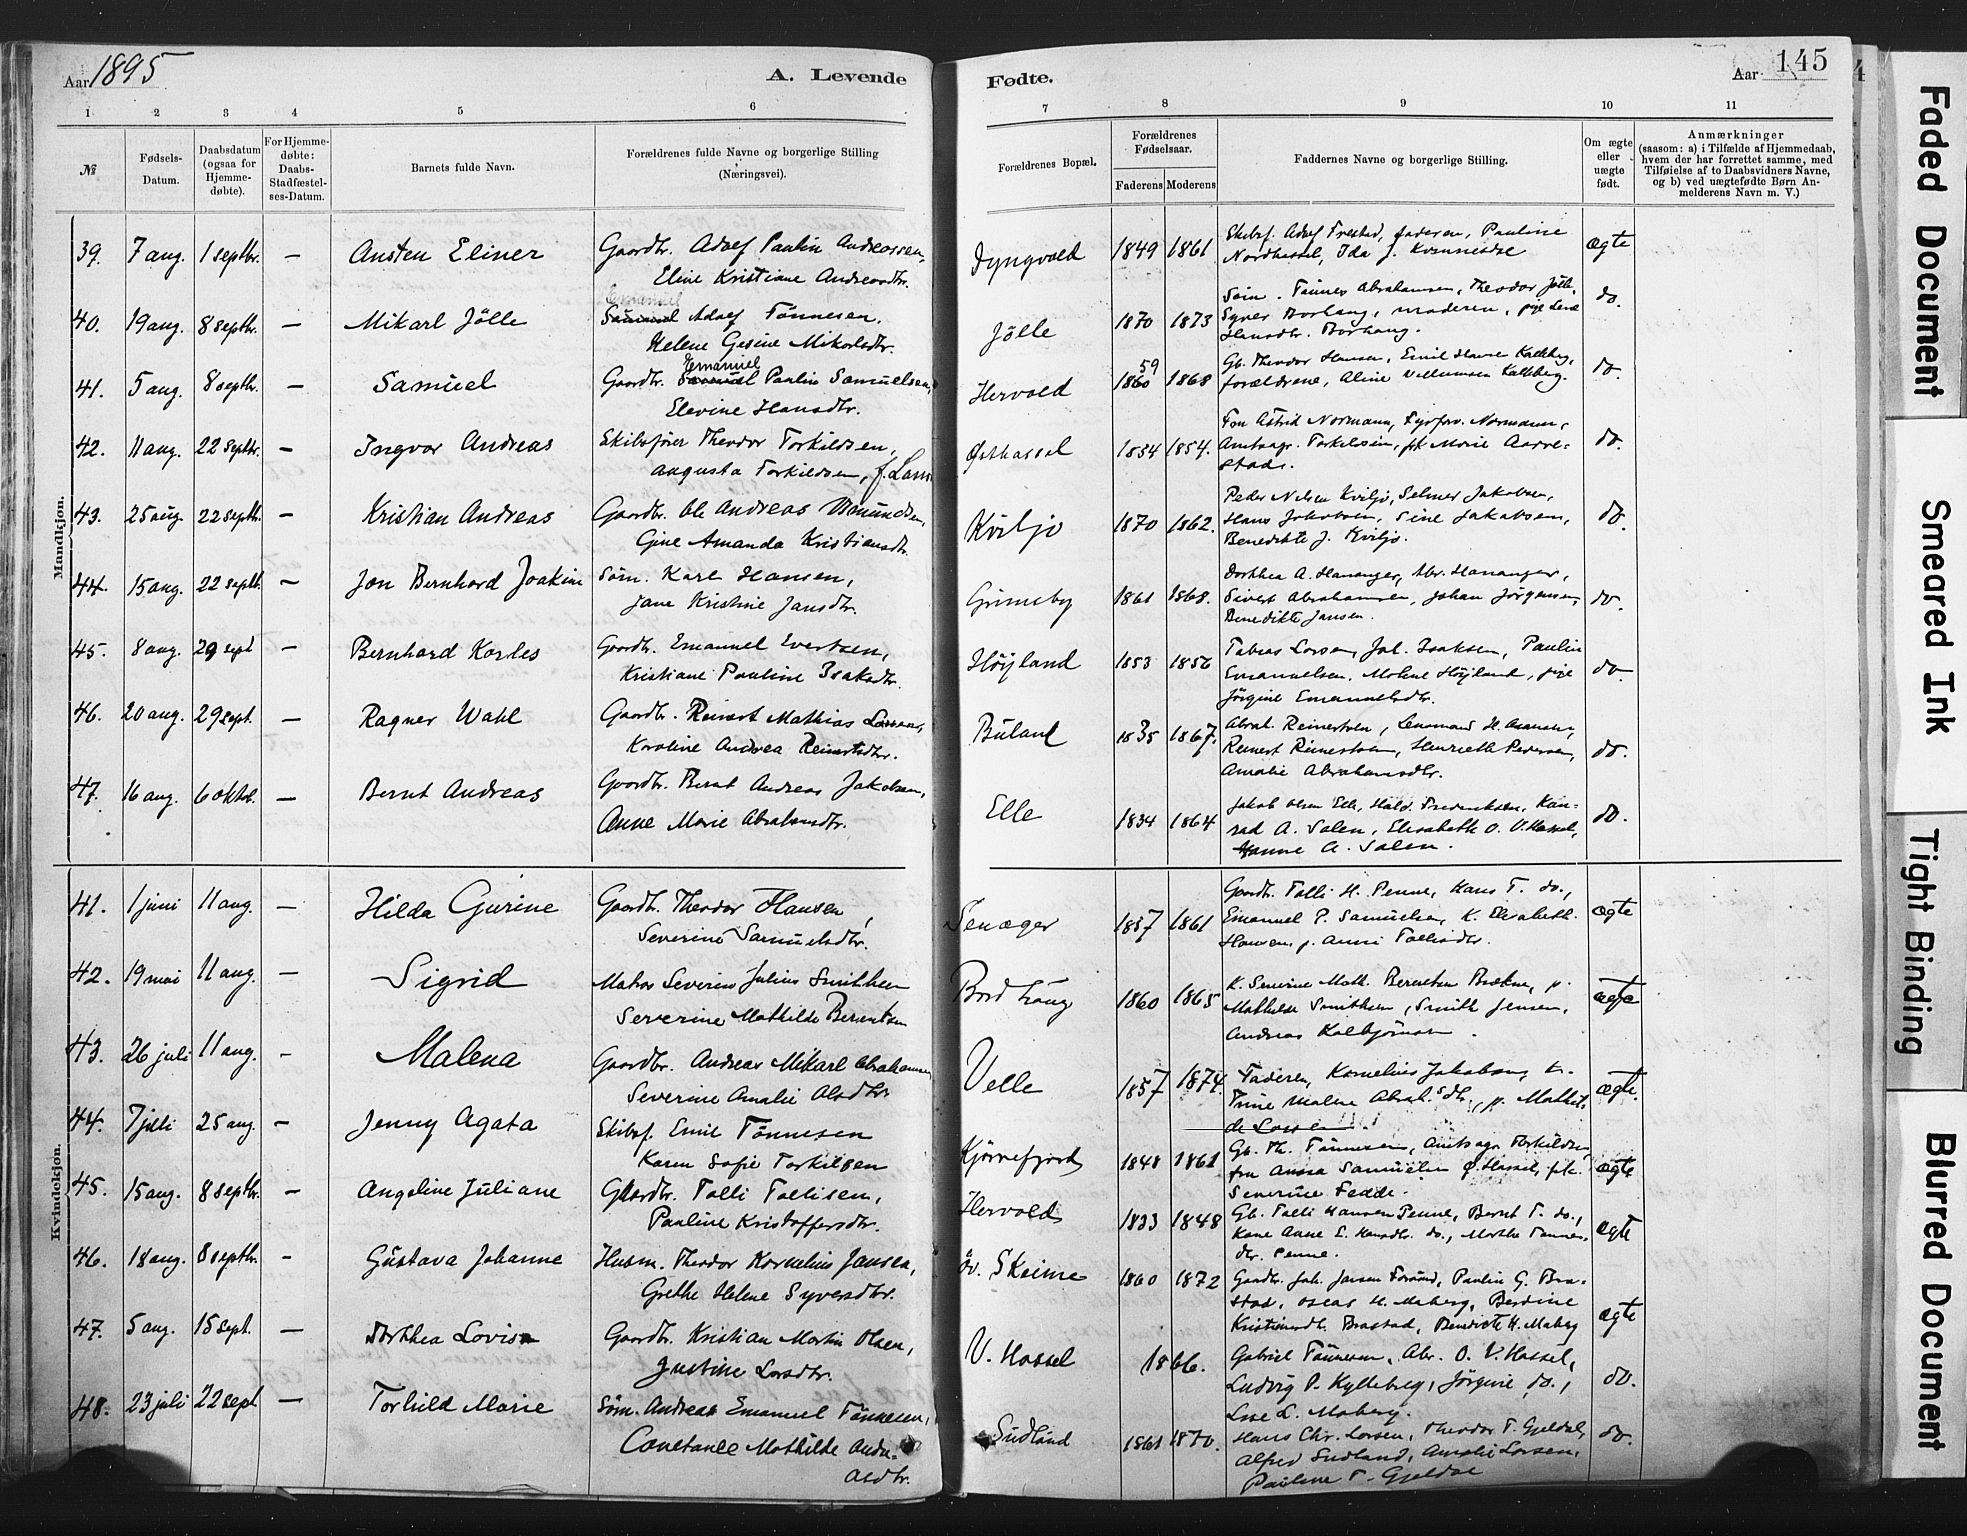 Aar 1895
A. Levende
Fødte.
Aar 145
1 2 3 4 5 6 7 8 9 10 11
№
Fødsels-
Datum.
Daabsdatum
(ogsaa for
Hjemme-
døbte).
For Hjemme-
døbte:
Daabs-
Stadfæstel-
ses-Datum.
Barnets fulde Navn.
Forældrenes fulde Navne og borgerlige Stilling
(Næringsvei).
Forældrenes Bopæl.
Forældrenes
Fødselsaar.
Faderens Moderens
Faddernes Navne og borgerlige Stilling.
Om ægte
eller
uægte
født.
Anmærkninger
(saasom: a) i Tilfælde af Hjemmedaab,
hvem der har forrettet samme, med
Tilføielse af to Daabsvidners Navne,
og b) ved uægtefødte Børn An-
melderens Navn m. V.)
Mandkjøn.
39. 7 aug. 1 septbr. – Austen Eliner
Gaardbr. Adolf Paulin Andreassen,
Eline Kristiane Andreasdtr.
Dyngvold 1849 1861
Skibsf. Adolf Frestad, faderen, Pauline
Nordhassel, Ida J. Kvinnesdse
ægte
40. 19 aug. 8 septbr. – Mikarl Jölle
Emanuel
Samuel Adolf Tönnesen,
Helene Gesine Mikarlsdtr.
Jölle 1870 1873
Söm. Tönnes Abrahamsen, Theodor Jölle,
Syver Borhaug, moderen, pige Lene
Hansdtr. Borhaug.
do.
41. 5 aug. 8 septbr. – Samuel
Emanuel
Gaardbr. Samuel Paulin Samuelsen,
Elevine Hansdtr.
Hervold 59 1860 1868
Gb. Theodor Hansen, Emil Hansen Kalleberg,
forældrene, Aline Villumsen Kalleberg.
do.
42. 11 aug. 22 septbr. – Ingvar Andreas
Skibsfører Theodor Torkildsen,
Augusta Torkildsen, f. Lam
Østhassel 1834 1854.
Fru Astrid Normann, Fyrforv. Normann,
Amtsagr. Torkelsen, frk Marie Aarre-
stad.
do.
43. 25 aug. 22 septbr. – Kristian Andreas
Gaardbr. Ole Andreas Osmundsen,
Gine Amanda Kristiansdtr.
Kviljo 1870 1862.
Peder Nilsen Kviljo, Selmer Jakobsen,
Hans Jakobsen, Sine Jakobsen,
Benedikte J. Kviljo.
do.
44. 15 aug. 22 septb. – Jon Bernhard Joakim
Söm. Karl Hansen,
Jane Kristine Jansdtr.
Grimsby 1861 1868.
Dorthea A. Hananger, Abr. Hananger,
Sivert Abrahamsen, Johan Jörgensen,
Benedikte Jansen.
do.
45. 8 aug. 29 sept – Bernhard Karles
Gaardbr. Emanuel Evertsen,
Kristiane Pauline Isaksdtr.
Höyland 1853 1856
Tobias Larsen, Joh. Isaksen, Paulin
Emanuelsen, Malene Höyland, pige
Jörgine Emanuelsdtr.
do
46. 20 aug. 29 sept. – Ragner Wahl
Gaardbr. Reinert Mathias Larsen,
Karoline Andrea Reinertsdtr.
Büland 1835 1867.
Abrah. Reinertsen, Lensmand H. Aanensen,
Reinert Reinertsen, Henriette Pedersen,
Amalie Abrahamsdtr.
do.
47. 16 aug. 6 oktbr. – Bernt Andreas
Gaardbr. Bernt Andreas Jakobsen,
Anne Marie Abrahamsdtr.
Elle 1834 1864
Jakob Olsen Elle, Hald. Frederiksen, Kon-
rad A. Salen, Elisabeth O. V. Hassel,
Hanne A. Salen.
do.
Kvindekjøn.
41. 1 juni 11 aug. – Hilda Gurine
Gaardbr. Theodor Hansen,
Severine Samuelsdtr.
Penæger 1857 1861
Gaardbr. Tolli H. Penne, Hans T. do.,
Emanuel P. Samuelsen, K. Elisabeth
Hansen, p. Anne Tollisdtr.
ægte
42. 19 mai 11 aug. – Sigrid
Matros Severin Julius Smithsen
Severine Mathilde Berentsen
Bordhaug 1860 1865
K. Severine Math. Berentsen Brekne, p.
Mathilde Smithsen, Smith Jensen,
Andreas Kalbjörnsen.
ægte
43. 26 juli 11 aug. – Malena
Gaardbr. Andreas Mikael Abrahamsen
Severine Amalie Olsdtr.
Velle 1857 1874.
Faderen, Kornelius Jakobsen, k.
Trine Malene Abrah.sdtr., p. Mathil-
de Larsen
ægte.
44. 7 juli 25 aug. – Jenny Agata
Skibsf. Emil Tönnesen
Karen Sofie Torkilsen
Kjörrefjord 1848 1861
Gb. Th. Tönnesen, Amtsagr Torkildsen,
fru Anna Samuelsen Ø. Hassel, frk.
Severine Fedde.
ægte
45. 15 aug. 8 septbr. – Angeline Juliane
Gaardbr. Tolli Tollisen,
Pauline Kristoffersdtr.
Hervold 1833 1848
Gb. Tolli Hansen Penne, Bernt T. do.,
Kone Anne L. Hansdtr. do., Marthe Tönnes-
dtr. Penne.
ægte
46. 18 aug. 8 septbr. – Gustava Johanne
Husm. Theodor Kornelius Jansen,
Grethe Helene Syversdtr.
Öv. Skeime 1860 1872
Gaardbr. Joh. Jansen Forsund, Paulin G. Bra-
stad, Oscar H. Maberg, Berdine
Kristiansdtr. Brastad, Benedicte H. Maberg
ægte
47. 5 aug. 15 sept. – Dorthea Lovise
Gaardbr. Kristian Martin Olsen,
Justine Larsdtr.
V. Hassel 1866.
Gabriel Tönnesen, Abr. O. V. Hassel,
Ludvig P. Kylleberg, Jörgine do.,
Lise L. Maberg.
do.
48. 23 juli 22 sept – Torhild Marie
Söm. Andreas Emanuel Tönnesen,
Constance Mathilde Andre-
asdtr.
Sudland 1861 1870.
Hans Chr. Larsen, Theodor T. Gjeldal,
Alfred Sudland, Amalie Larsen,
Pauline T. Gjeldal
do.
Faded Document
Smeared Ink
Tight Binding
Blurred Document